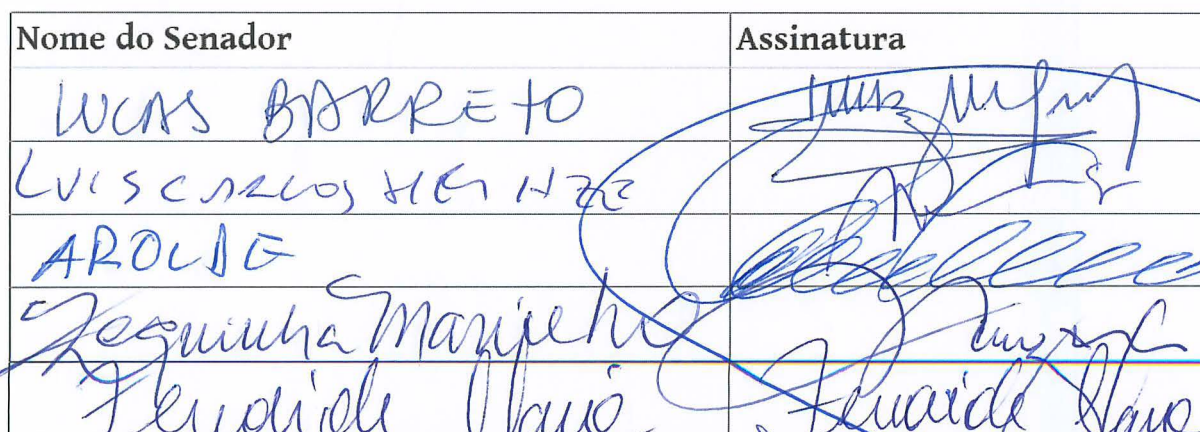 Nome do Senador Assinatura
LUCAS BARRETO
LUIS CARLOS HEINZE
AROLDE
Zequinha Marinho
Zenaide Maia Zenaide Maia